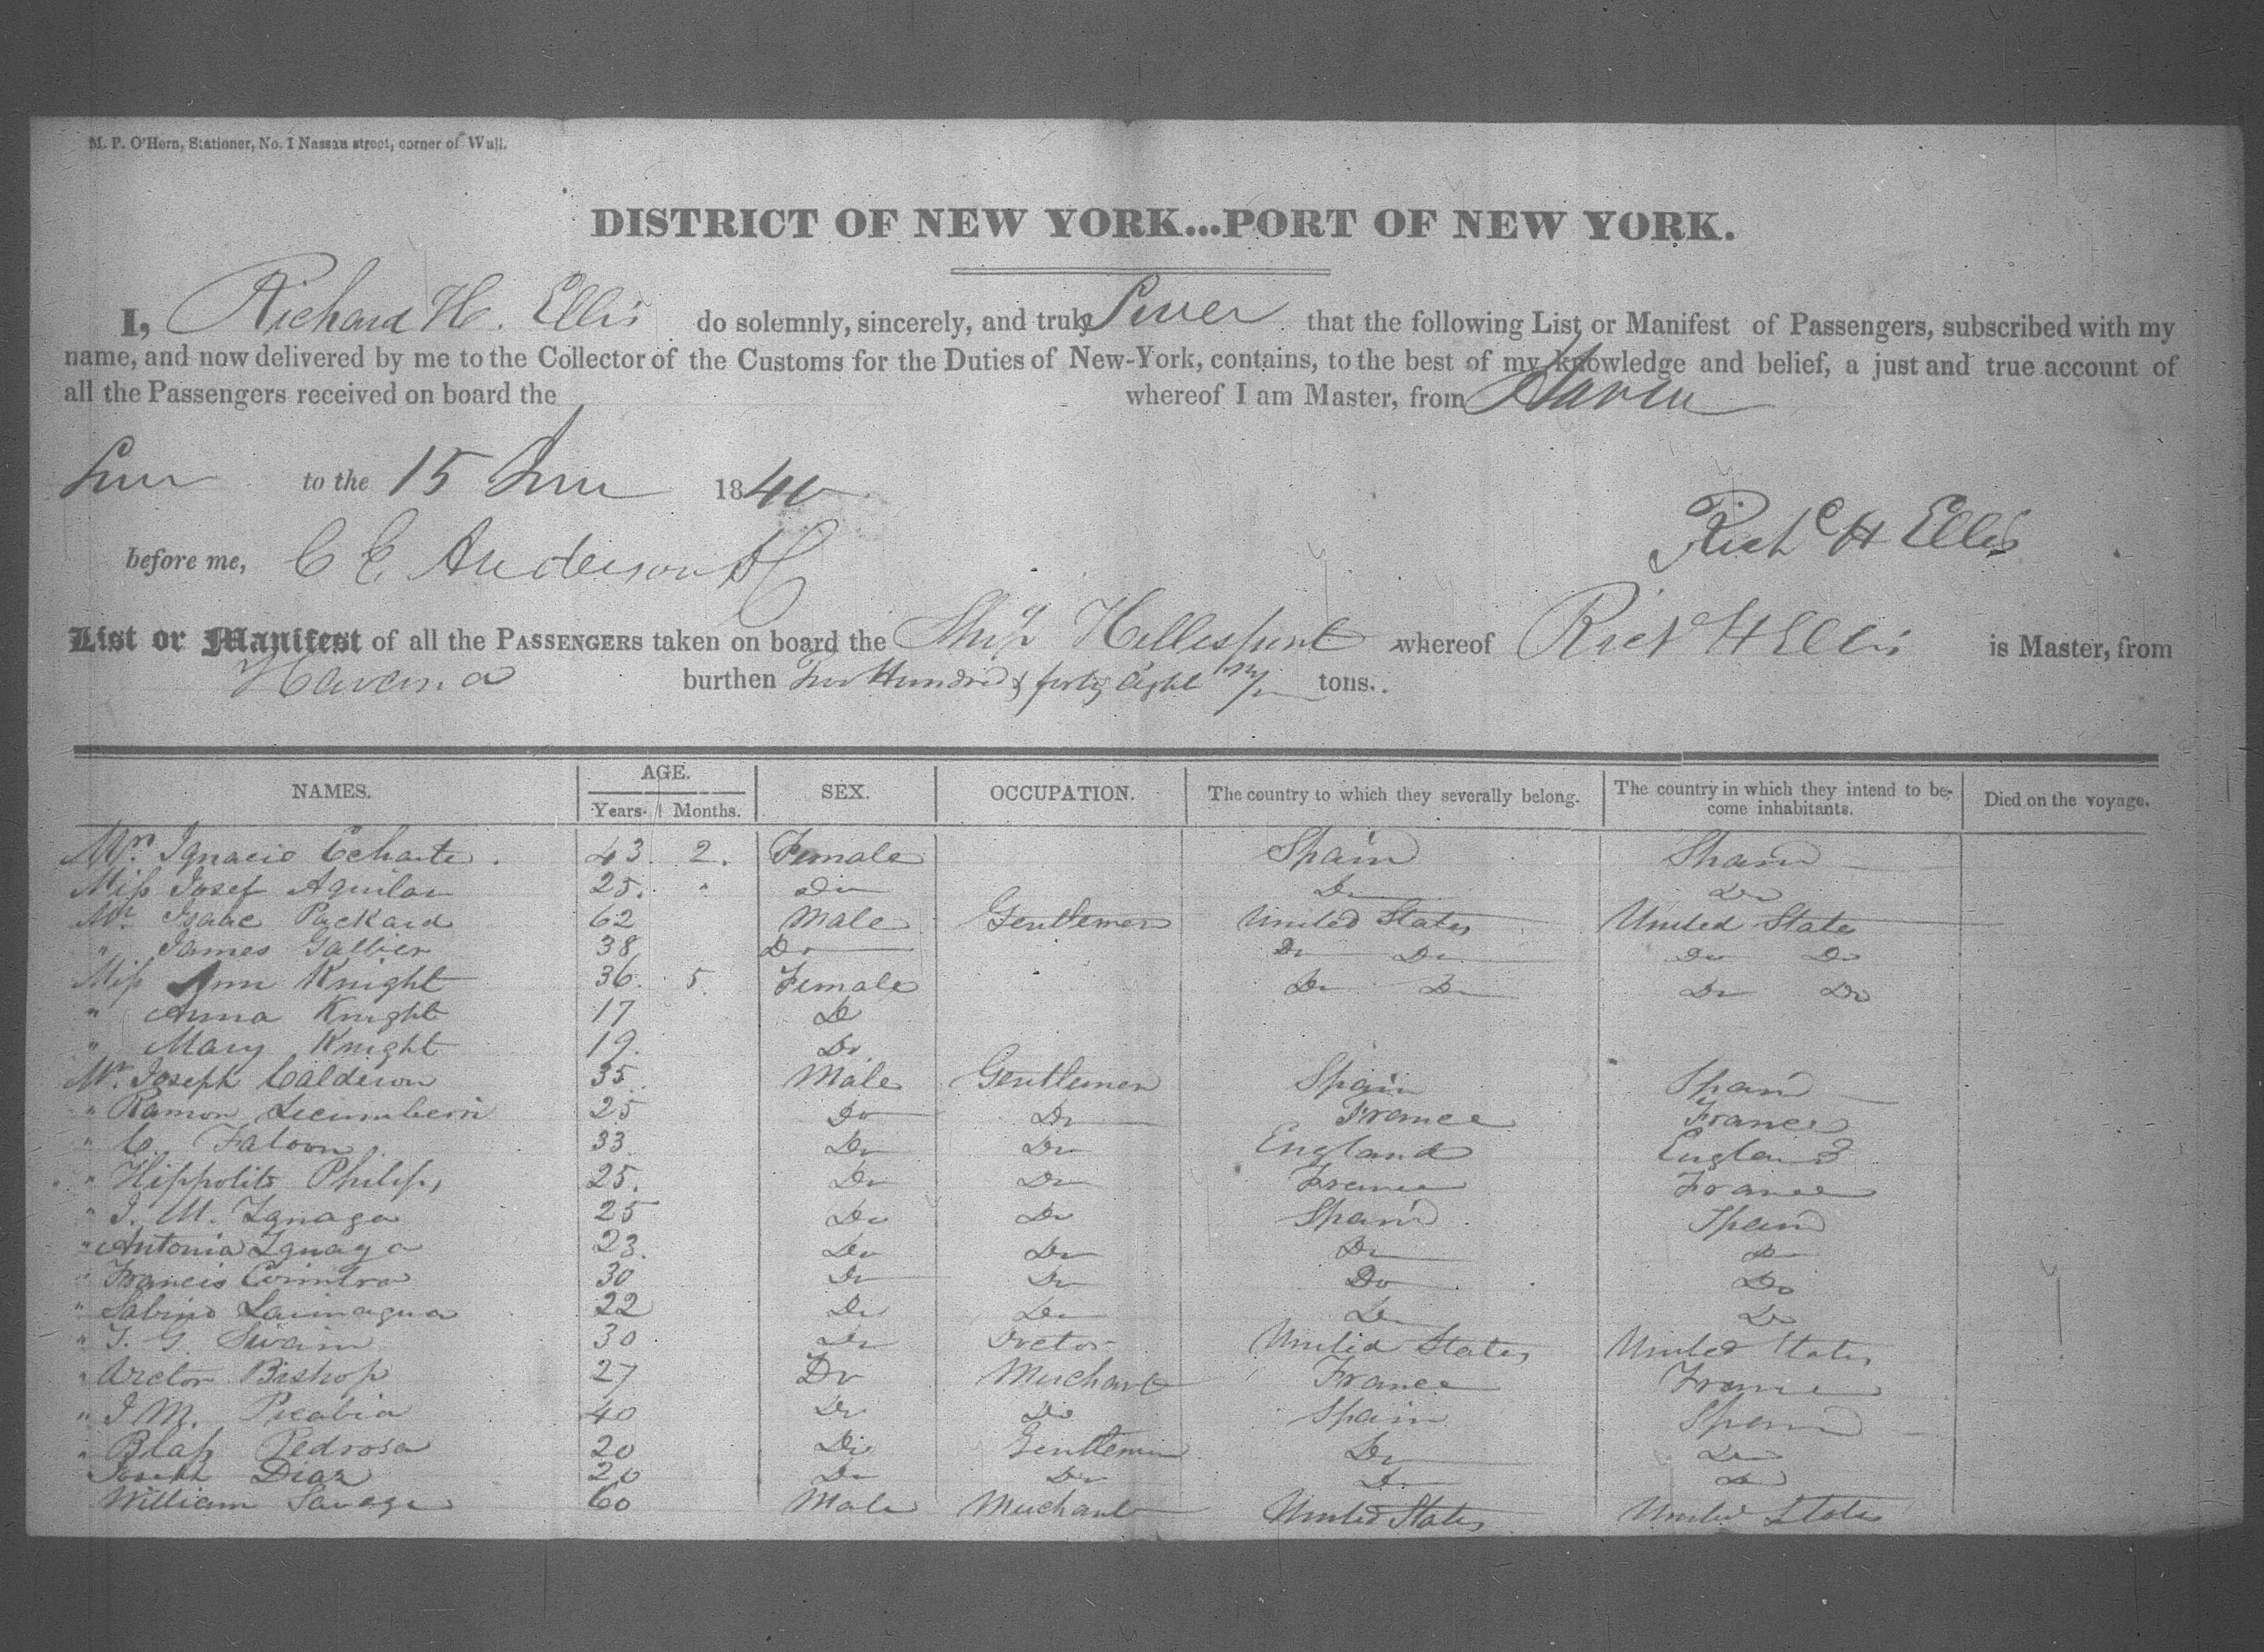 M. P. O'Hern, Stationer, No. 1 Nassau street, corner of Wall.
DISTRICT OF NEW YORK...PORT OF NEW YORK.
I, Richard H. Ellis do solemnly, sincerely, and truly Swer that the following List or Manifest of Passengers, subscribed with my
name, and now delivered by me to the Collector of the Customs for the Duties of New-York, contains, to the best of my knowledge and belief, a just and true account of
all the Passengers received on board the whereof I am Master, from
to the 15 1840
before me, C C Anderson Richd H Ellis
List or Manifest of all the PASSENGERS taken on board the Ship Hellespont whereof Richd H Ellis is Master, from
Havana burthen Hundred & forty Eight tons.
NAMES. AGE. Years. Months. SEX. OCCUPATION. The country to which they severally belong. The country in which they intend to become inhabitants. Died on the voyage.
Mrs Ignacio Echarte. 43. 2. Female Spain Spain
Miss Josef Aguilar 25. " Do Do Do
Mr. Isaac Packard 62 Male Gentlemen United States United States
" James Galbier 38 Do Do Do Do Do
Miss Ann Knight 36. 5 Female Do Do Do Do
" Anna Knight 17 Do
" Mary Knight 19. Do
Mr. Joseph Calderon 35. Male Gentlemen Spain Spain
" Ramon Lecumberri 25 Do Do France France
" C. Faloon 33 Do Do England England
" Hippolite Philips 25. Do Do France France
" J. M. Zgnaga 25 Do Do Spain Spain
" Antonia Zgnaga 23. Do Do Do Do
" Francis 30 Do Do Do Do
" Sabino 22 Do Do Do Do
" T. G. Swain 30 Do Doctor United States United States
" Victor Bishop 27 Do Merchant France France
" J M. Picabia 40 Do Do Spain Spain
" Blass Pedrosa 20 Do Gentlemen Do Do
Joseph Diaz 20 Do Do Do Do
William Savage 60 Male Merchant United States United States